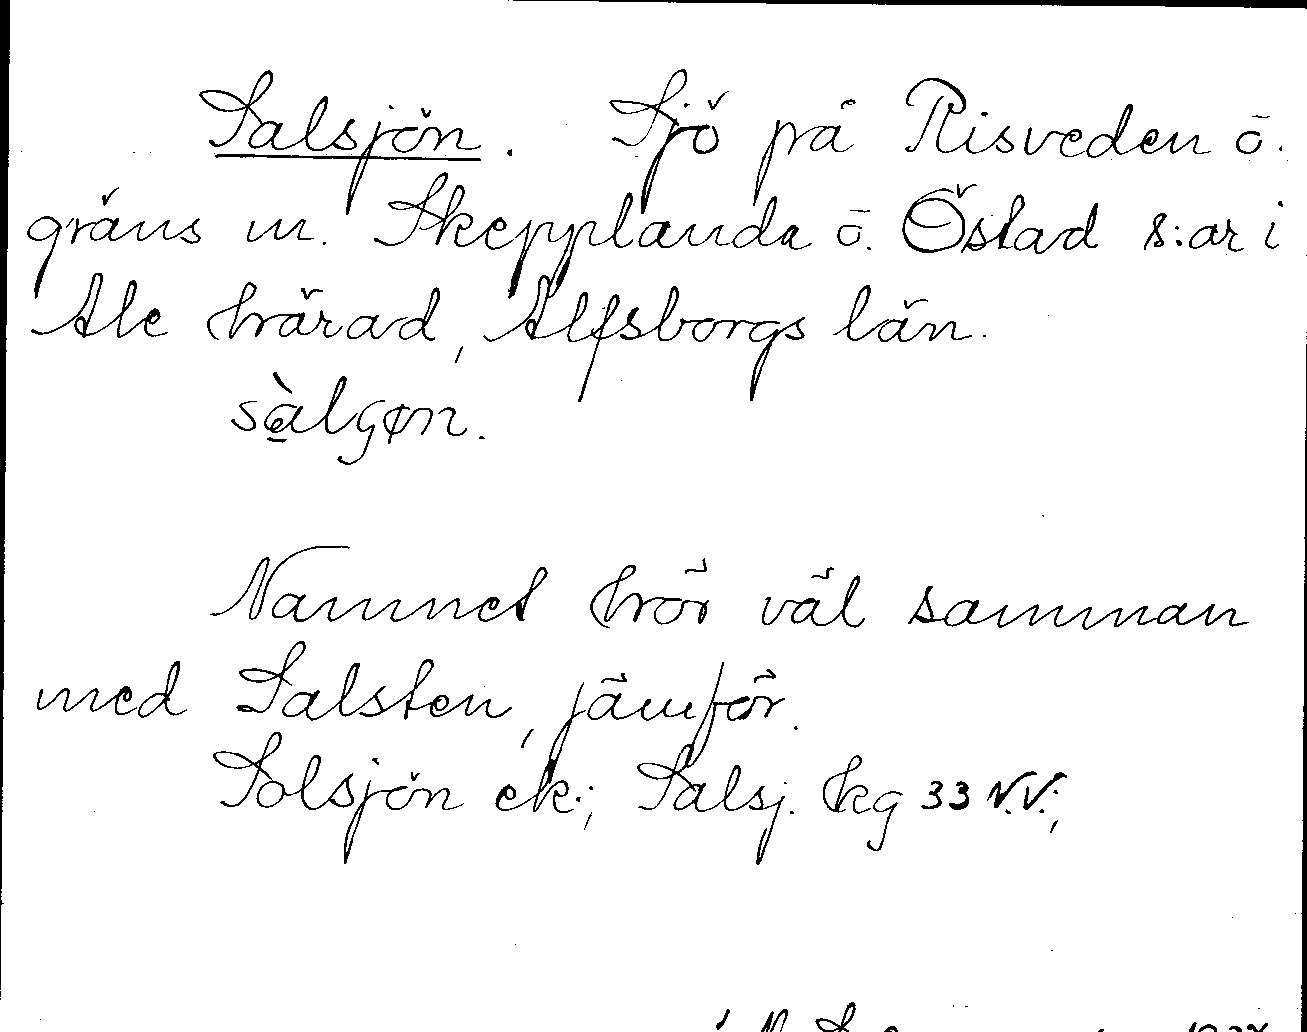 Salsjön. Sjö på Risveden ō.
gräns m. Skepplanda ō. Östad s:ar i
Ale härad, Älfsborgs län.
sàlʂøn.
Namnet hör väl samman
med Salsten, jämför.
Solsjön ek.; Salsj. kg 33 N.V.;